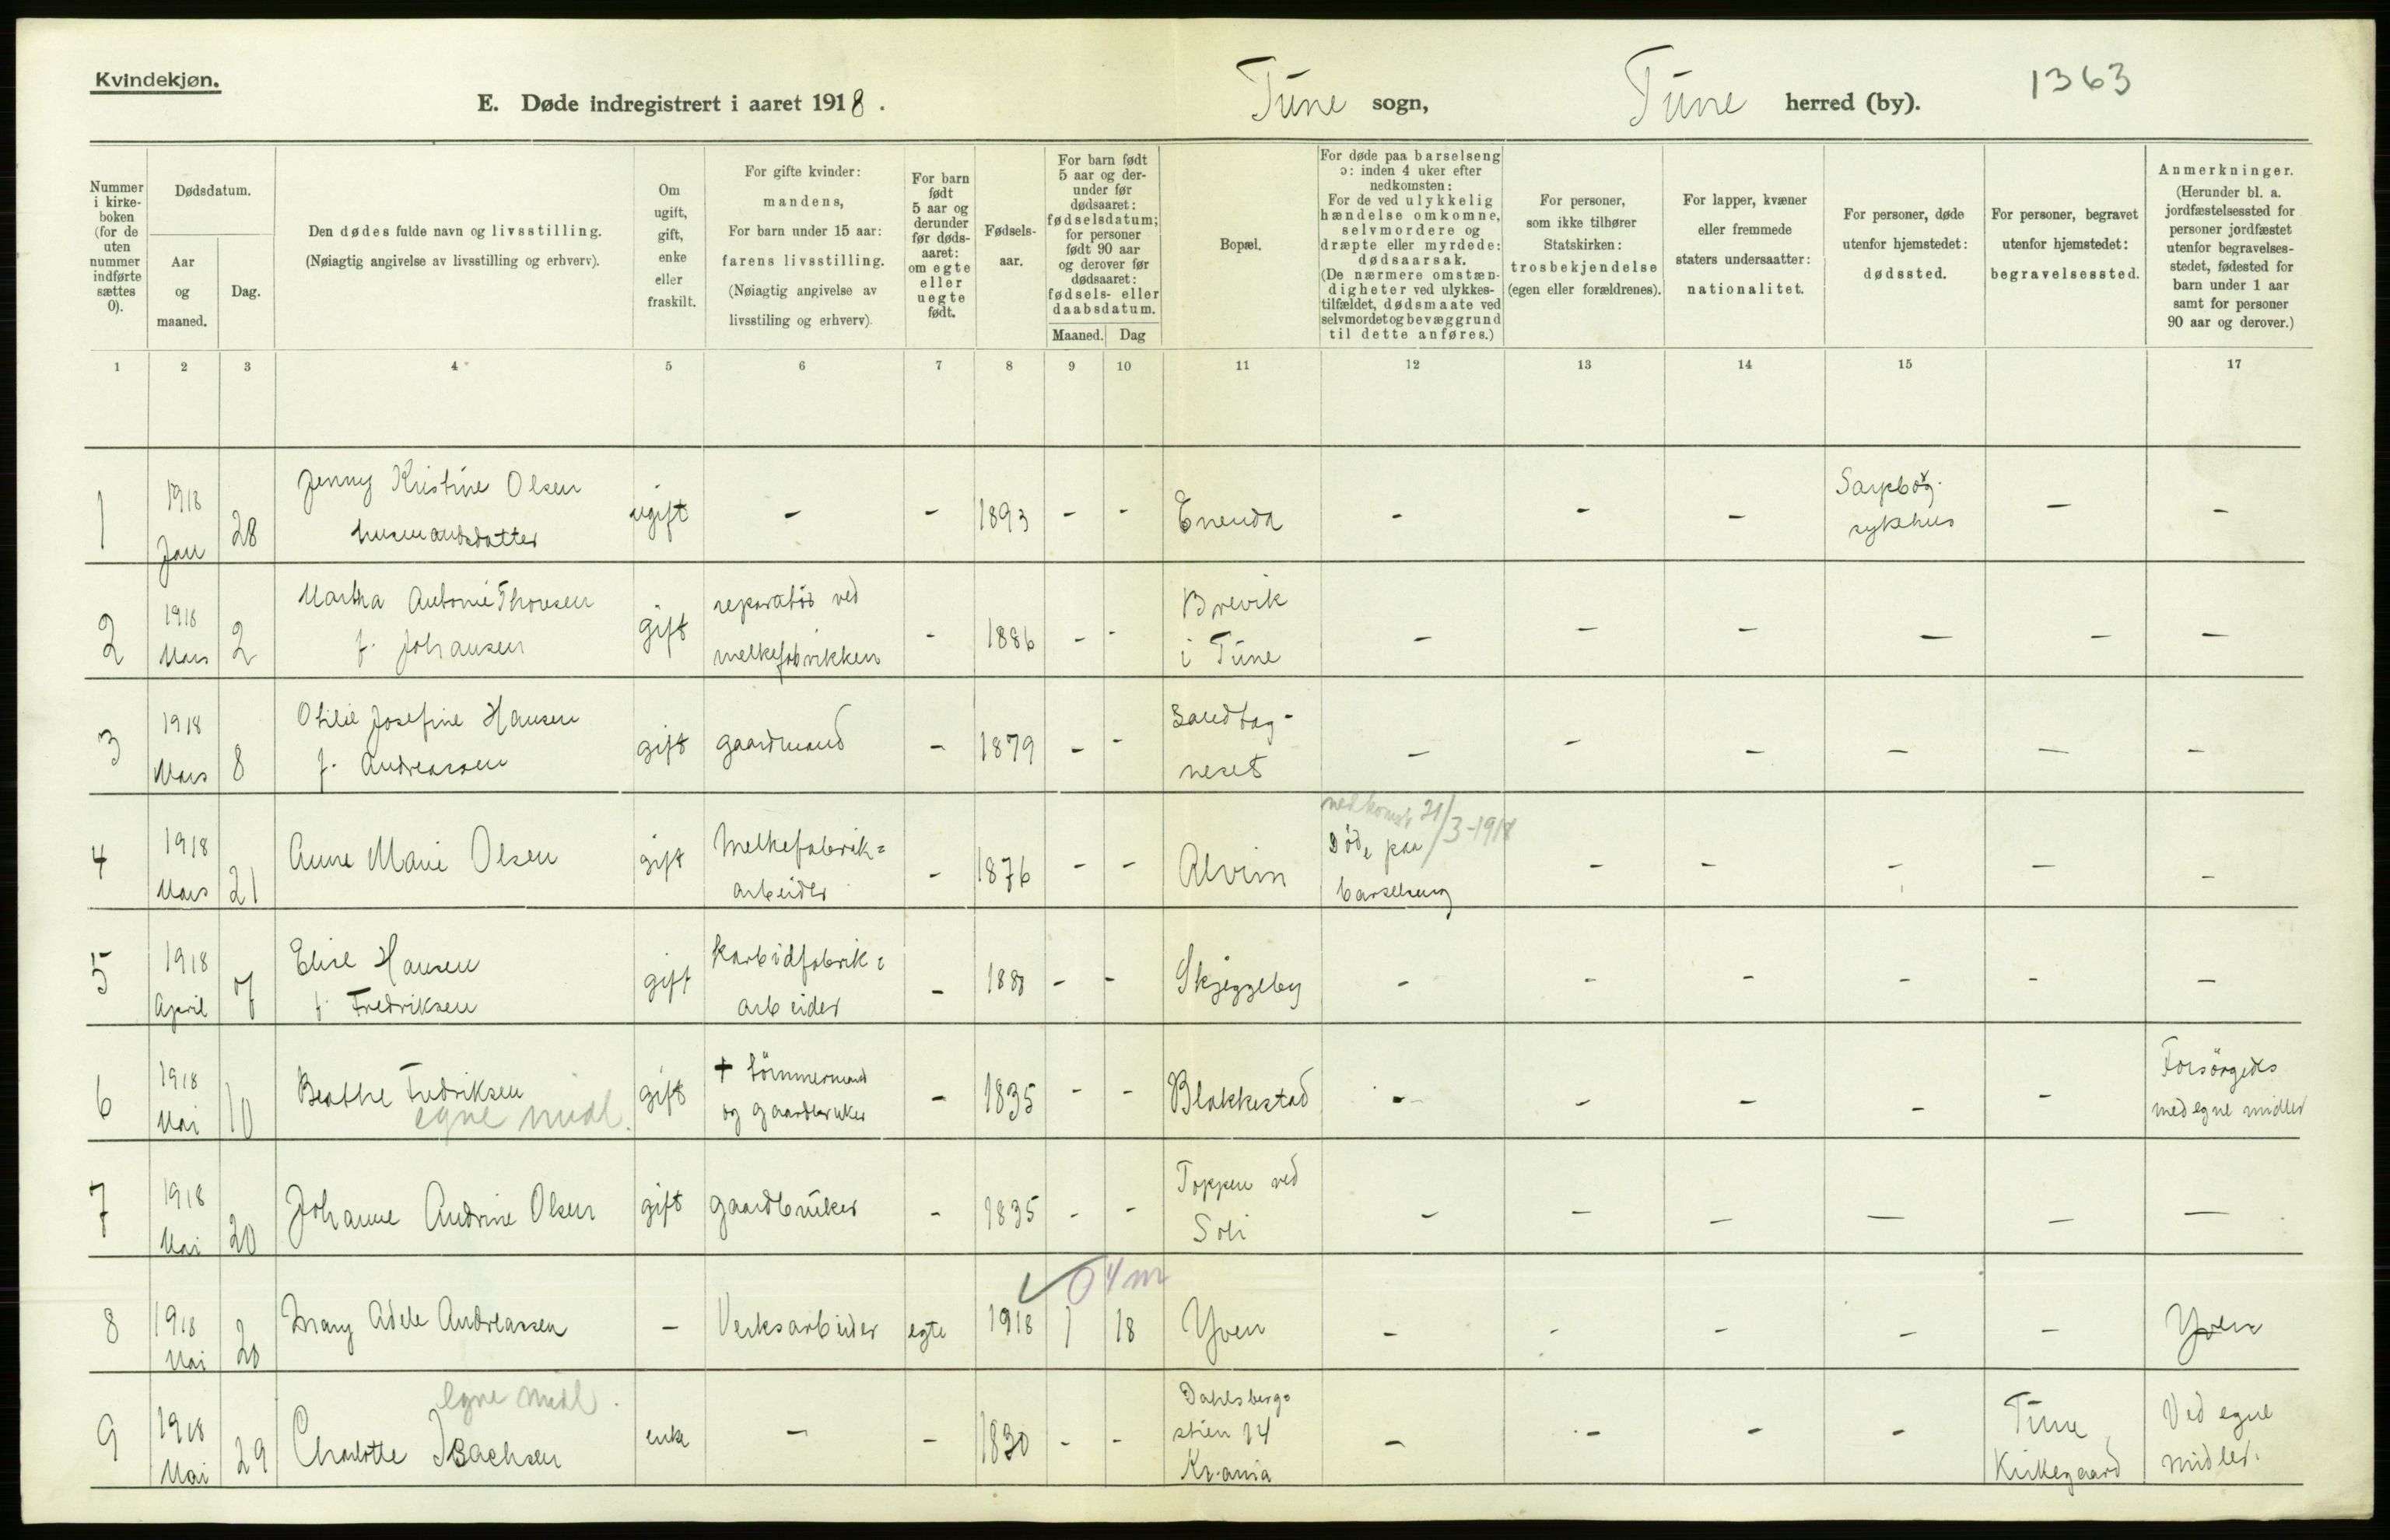 Kvindekjøn.
E. Døde indregistrert i aaret 1918.
Tune sogn,
Tune herred (by).
1363
Nummer i kirke-boken (for de uten nummer indførte sættes 0).
Dødsdatum.
Aar og maaned.
Dag.
Den dødes fulde navn og livsstilling.
(Nøiagtig angivelse av livsstilling og erhverv).
Om ugift, gift, enke eller fraskilt.
For gifte kvinder:
mandens,
For barn under 15 aar:
farens livsstilling.
(Nøiagtig angivelse av
livsstiling og erhverv).
For barn født 5 aar og derunder før døds-aaret: om egte eller uegte født.
Fødsels-aar.
For barn født 5 aar og der-under før dødsaaret: fødselsdatum; for personer født 90 aar og derover før dødsaaret: fødsels- eller daabsdatum.
Maaned.
Dag
Bopæl.
For døde paa barselseng
ɔ: inden 4 uker efter
nedkomsten:
For de ved ulykkelig
hændelse omkomne,
selvmordere og
dræpte eller myrdede:
dødsaarsak.
(De nærmere omstæn-
digheter ved ulykkes-
tilfældet, dødsmaate ved
selvmordet og bevæggrund
til dette anføres.)
For personer,
som ikke tilhører
Statskirken:
trosbekjendelse
(egen eller forældrenes).
For lapper, kvæner
eller fremmede
staters undersaatter:
nationalitet.
For personer, døde
utenfor hjemstedet:
dødssted.
For personer, begravet
utenfor hjemstedet:
begravelsessted.
Anmerkninger.
(Herunder bl. a.
jordfæstelsessted for
personer jordfæstet
utenfor begravelses-
stedet, fødested for
barn under 1 aar
samt for personer
90 aar og derover.)
1 2 3 4 5 6 7 8 9 10 11 12 13 14 15 17
1 1918 Jan 28 Jenny Kristine Olsen
husmandsdatter
ugift - - 1893 - - Enenda - - - Sarpborg
sykehus - -
2 1918 Mars 2 Martha Antonie Thoresen
f. Johansen
gift reparatör ved
melkefabrikken - 1886 - - Brevik
i Tune - - - - - -
3 1918 Mars 8 Otilie Josefine Hansen
f. Andreassen
gift gaardmand - 1879 - - Sandtag-
neset - - - - - -
4 1918 Mars 21 Anne Marie Olsen gift Melkefabrik=
arbeider - 1876 - - Alvim
nedkomst 21/3-1918
Död paa
barselseng - - - - -
5 1918 April 7 Elise Hansen
f. Fredriksen
gift Karbidfabrik=
arbeider - 188 - - Skjeggeby - - - - - -
6 1918 Mai 10 Beathe Fredriksen
egne midl.
gift + tömmermand
og gaardbruker - 1835 - - Blakkestad - - - - - Forsörgedes
med egne midler
7 1918 Mai 20 Johanne Andrine Olsen gift gaardbruker - 1835 - - Toppen ved
Soli - - - - - -
0 4 m
8 1918 Mai 20 Mary Adele Andreassen - Verksarbeider egte 1918 1 18 Yven - - - - - Yven
egne midl.
9 1918 Mai 29 Charlotte Isachsen enke - - 1830 - - Dahlsbergs
stien 14
Kr.ania - - - - Tune
Kirkegaard
Ved egne
midler.